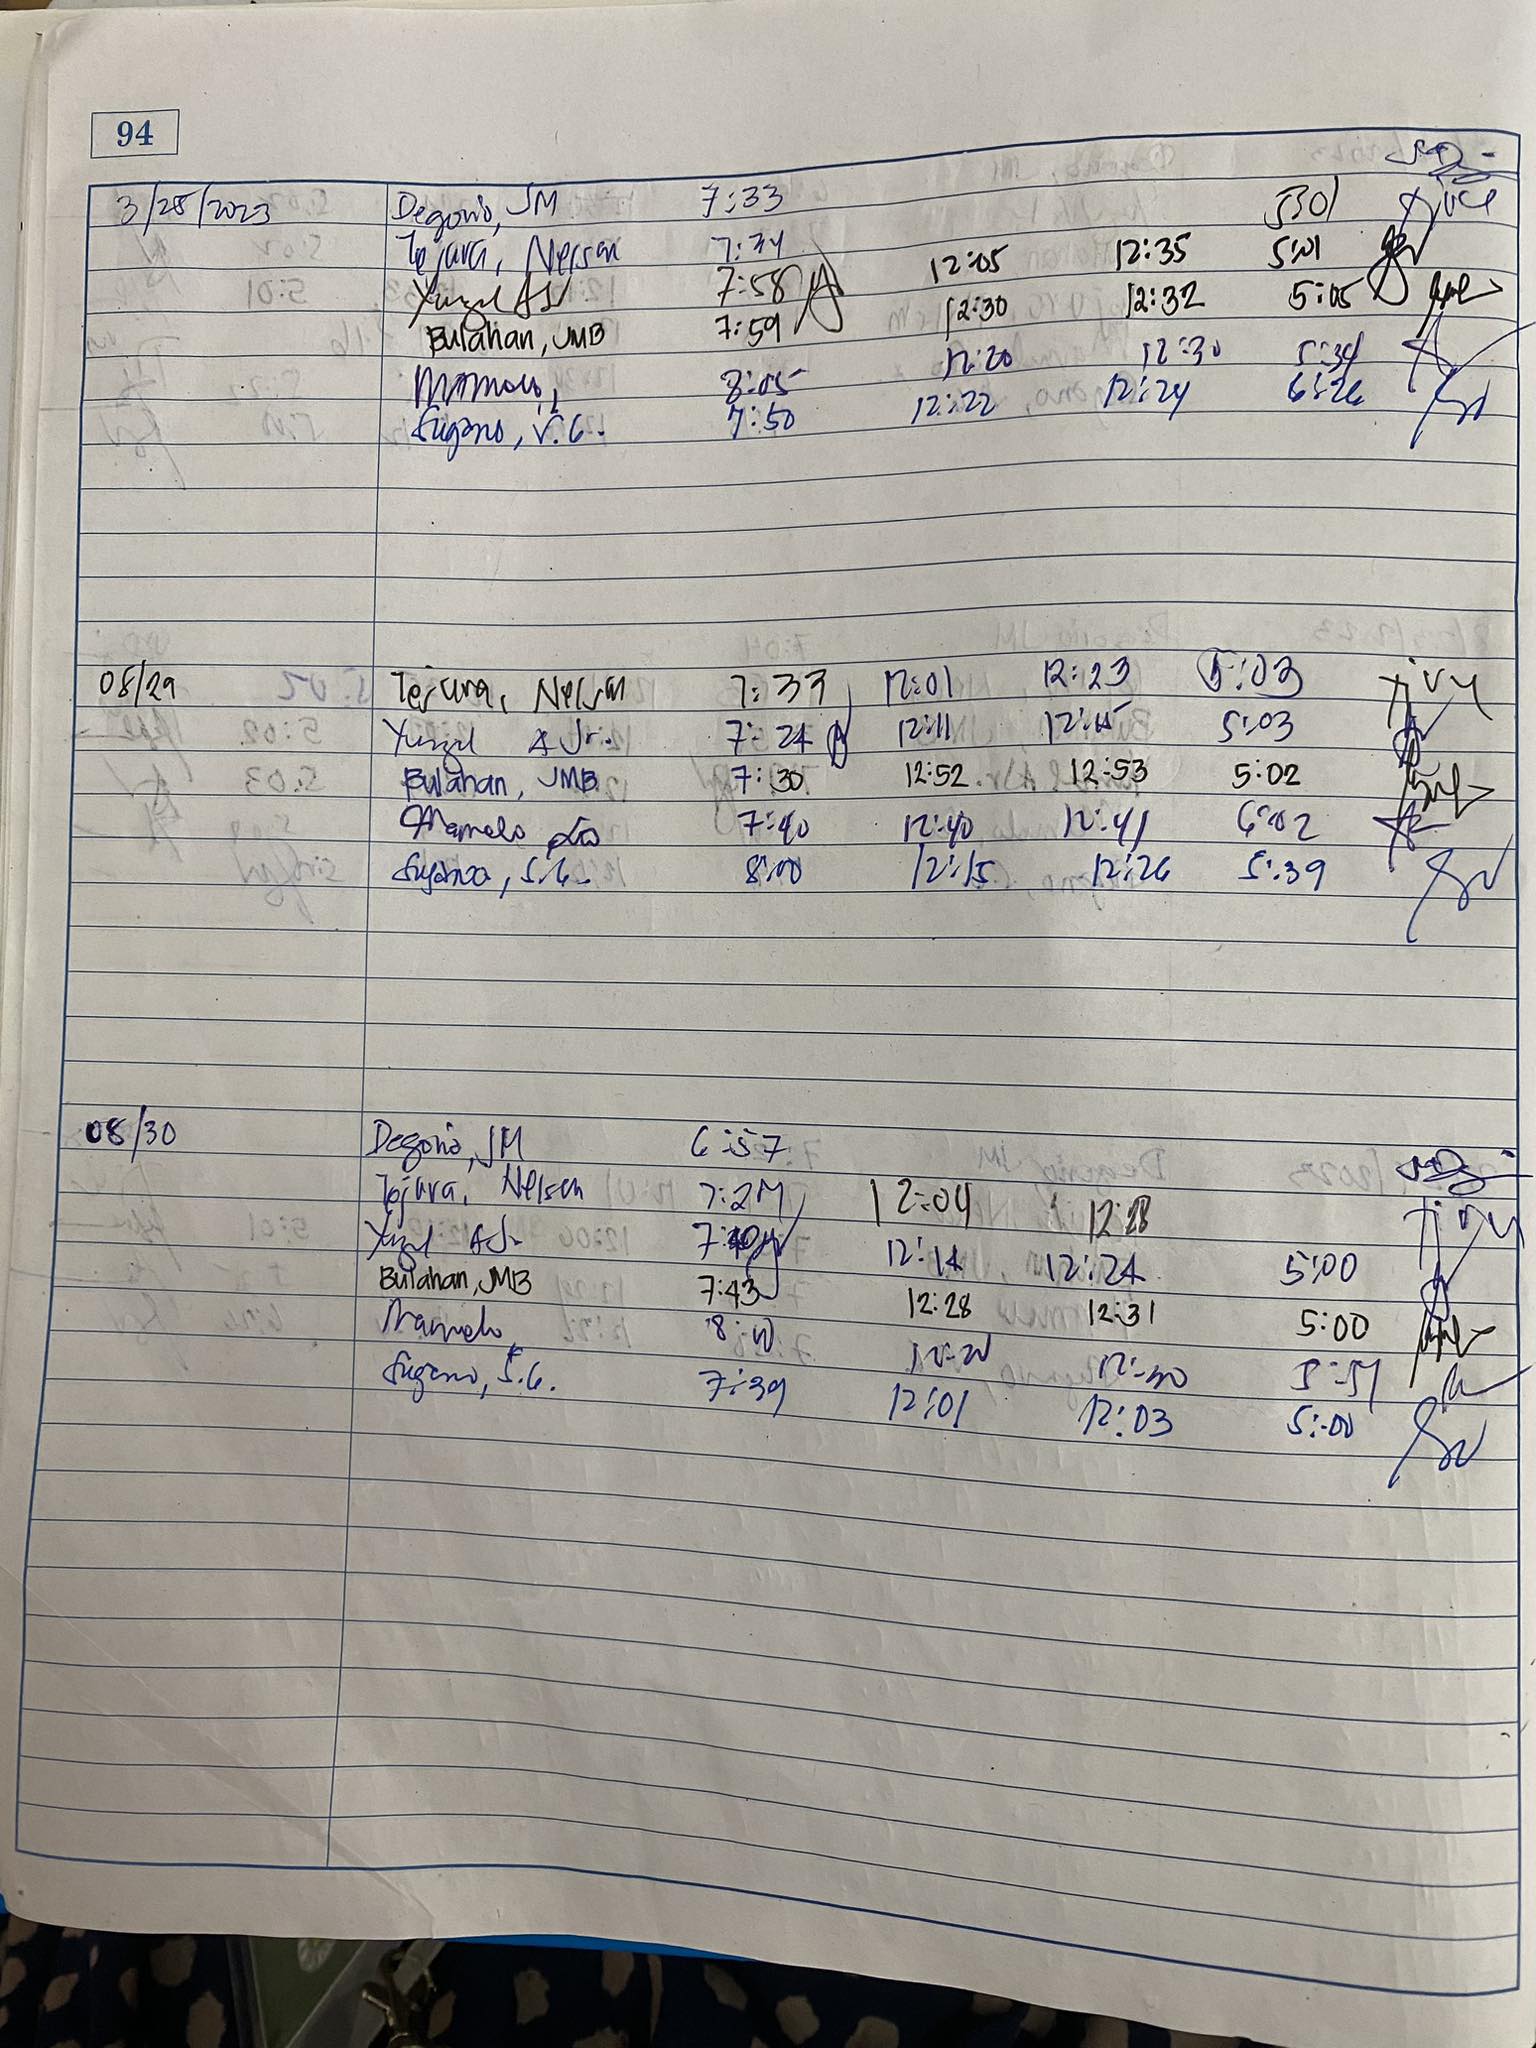 94
3/28/2023 Degorio, JM 7:33
Tejura, Nelson 7:34 5:01
Yungil AJr 7:58 12:05 12:35 5:01
Bulahan, JMB 7:59 12:30 12:32 5:05
8:05 12:20 12:30 5:34
Sugano, S.G. 7:50 12:22 12:24 6:26
08/29 Tejura, Nelson 7:33 12:01 12:23 5:03
Yungil AJr. 7:24 12:11 12:15 5:03
Bulahan, JMB 7:30 12:52 12:53 5:02
Mamelo 7:40 12:40 12:41 6:02
Sugano, S.G. 8:00 12:15 12:26 5:39
08/30 Degorio, JM 6:57
Tejura, Nelson 12:04 12:28
Yungil AJr 12:14 12:24 5:00
Bulahan, JMB 7:43 12:28 12:31 5:00
Mamelo 12:20 12:30
Sugano, S.G. 7:39 12:01 12:03 5:00